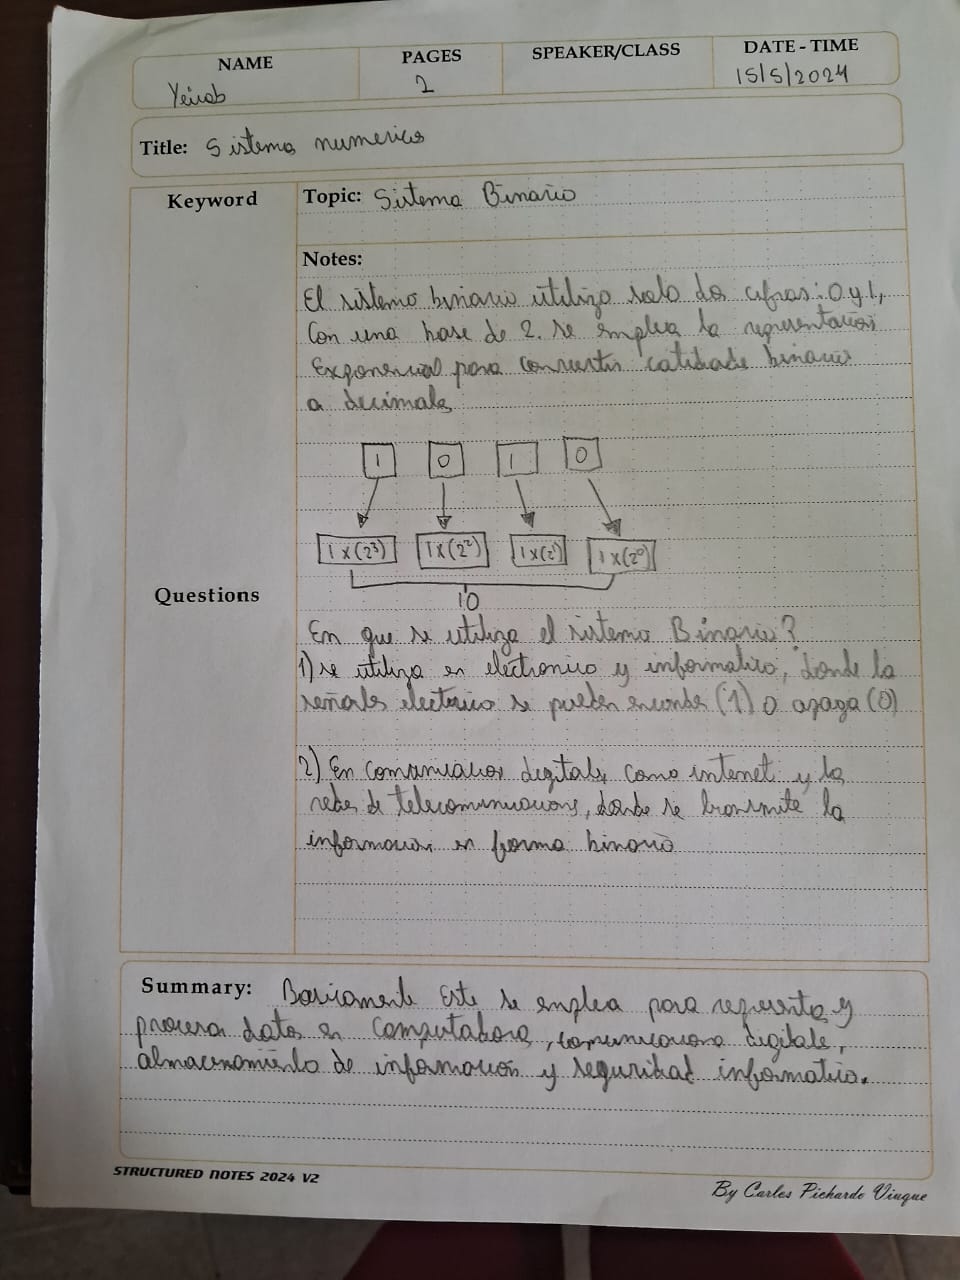 NAME
PAGES
SPEAKER/CLASS
DATE - TIME
2
15/5/2024
Title: Sistema numerico
Keyword
Topic: Sistema Binario
Notes:
El sistema binario utiliza solo dos cifras: 0 y 1,
Con una base de 2. se emplea la representación
Exponencial para convertir catidade binario
a decimales
1 0 1 0
1x(2³) 1x(2²) 1x(2¹) 1x(2⁰)
10
Questions
En que se utiliza el sistema Binario?
1) se utiliza en electronico y informatico, donde la
señales electrico se pueden encender (1) o apaga (0)
2) En comunicacion digitales, como internet y las
redes de telecomunicacions, donde se transmite la
información en forma binario
Summary: Basicamente Este se emplea para representa y
procesa datos en computadora, comunicacions digitale,
almacenamiento de información y seguridad informatica.
STRUCTURED NOTES 2024 V2
By Carlos Pichardo Viuque